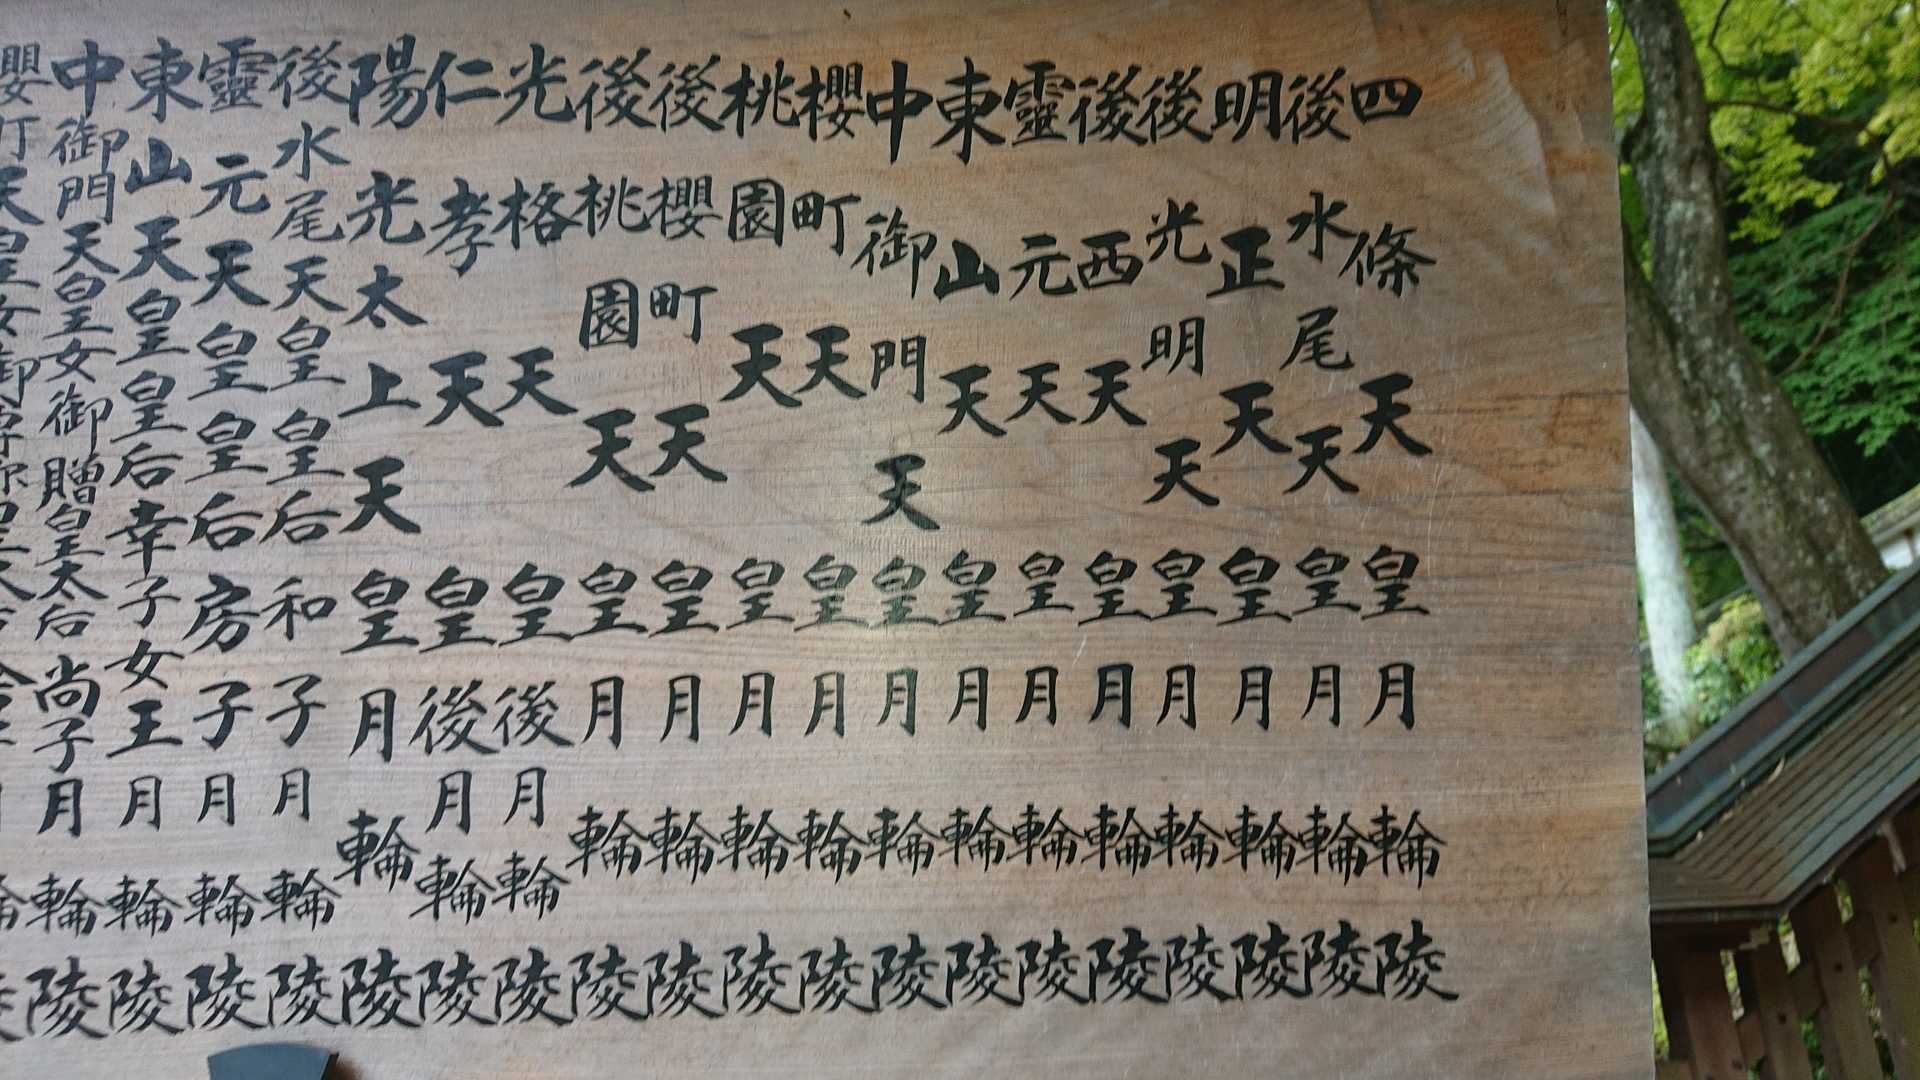 四條天皇月輪陵
後水尾天皇月輪陵
明正天皇月輪陵
後光明天皇月輪陵
後西天皇月輪陵
靈元天皇月輪陵
東山天皇月輪陵
中御門天皇月輪陵
櫻町天皇月輪陵
桃園天皇月輪陵
後櫻町天皇月輪陵
後桃園天皇月輪陵
光格天皇後月輪陵
仁孝天皇後月輪陵
陽光太上天皇月輪陵
後水尾天皇皇后和子月輪陵
靈元天皇皇后房子月輪陵
東山天皇皇后幸子女王月輪陵
中御門天皇女御贈皇太后尚子月輪陵
櫻町天皇女御尊称皇太后舍子月輪陵